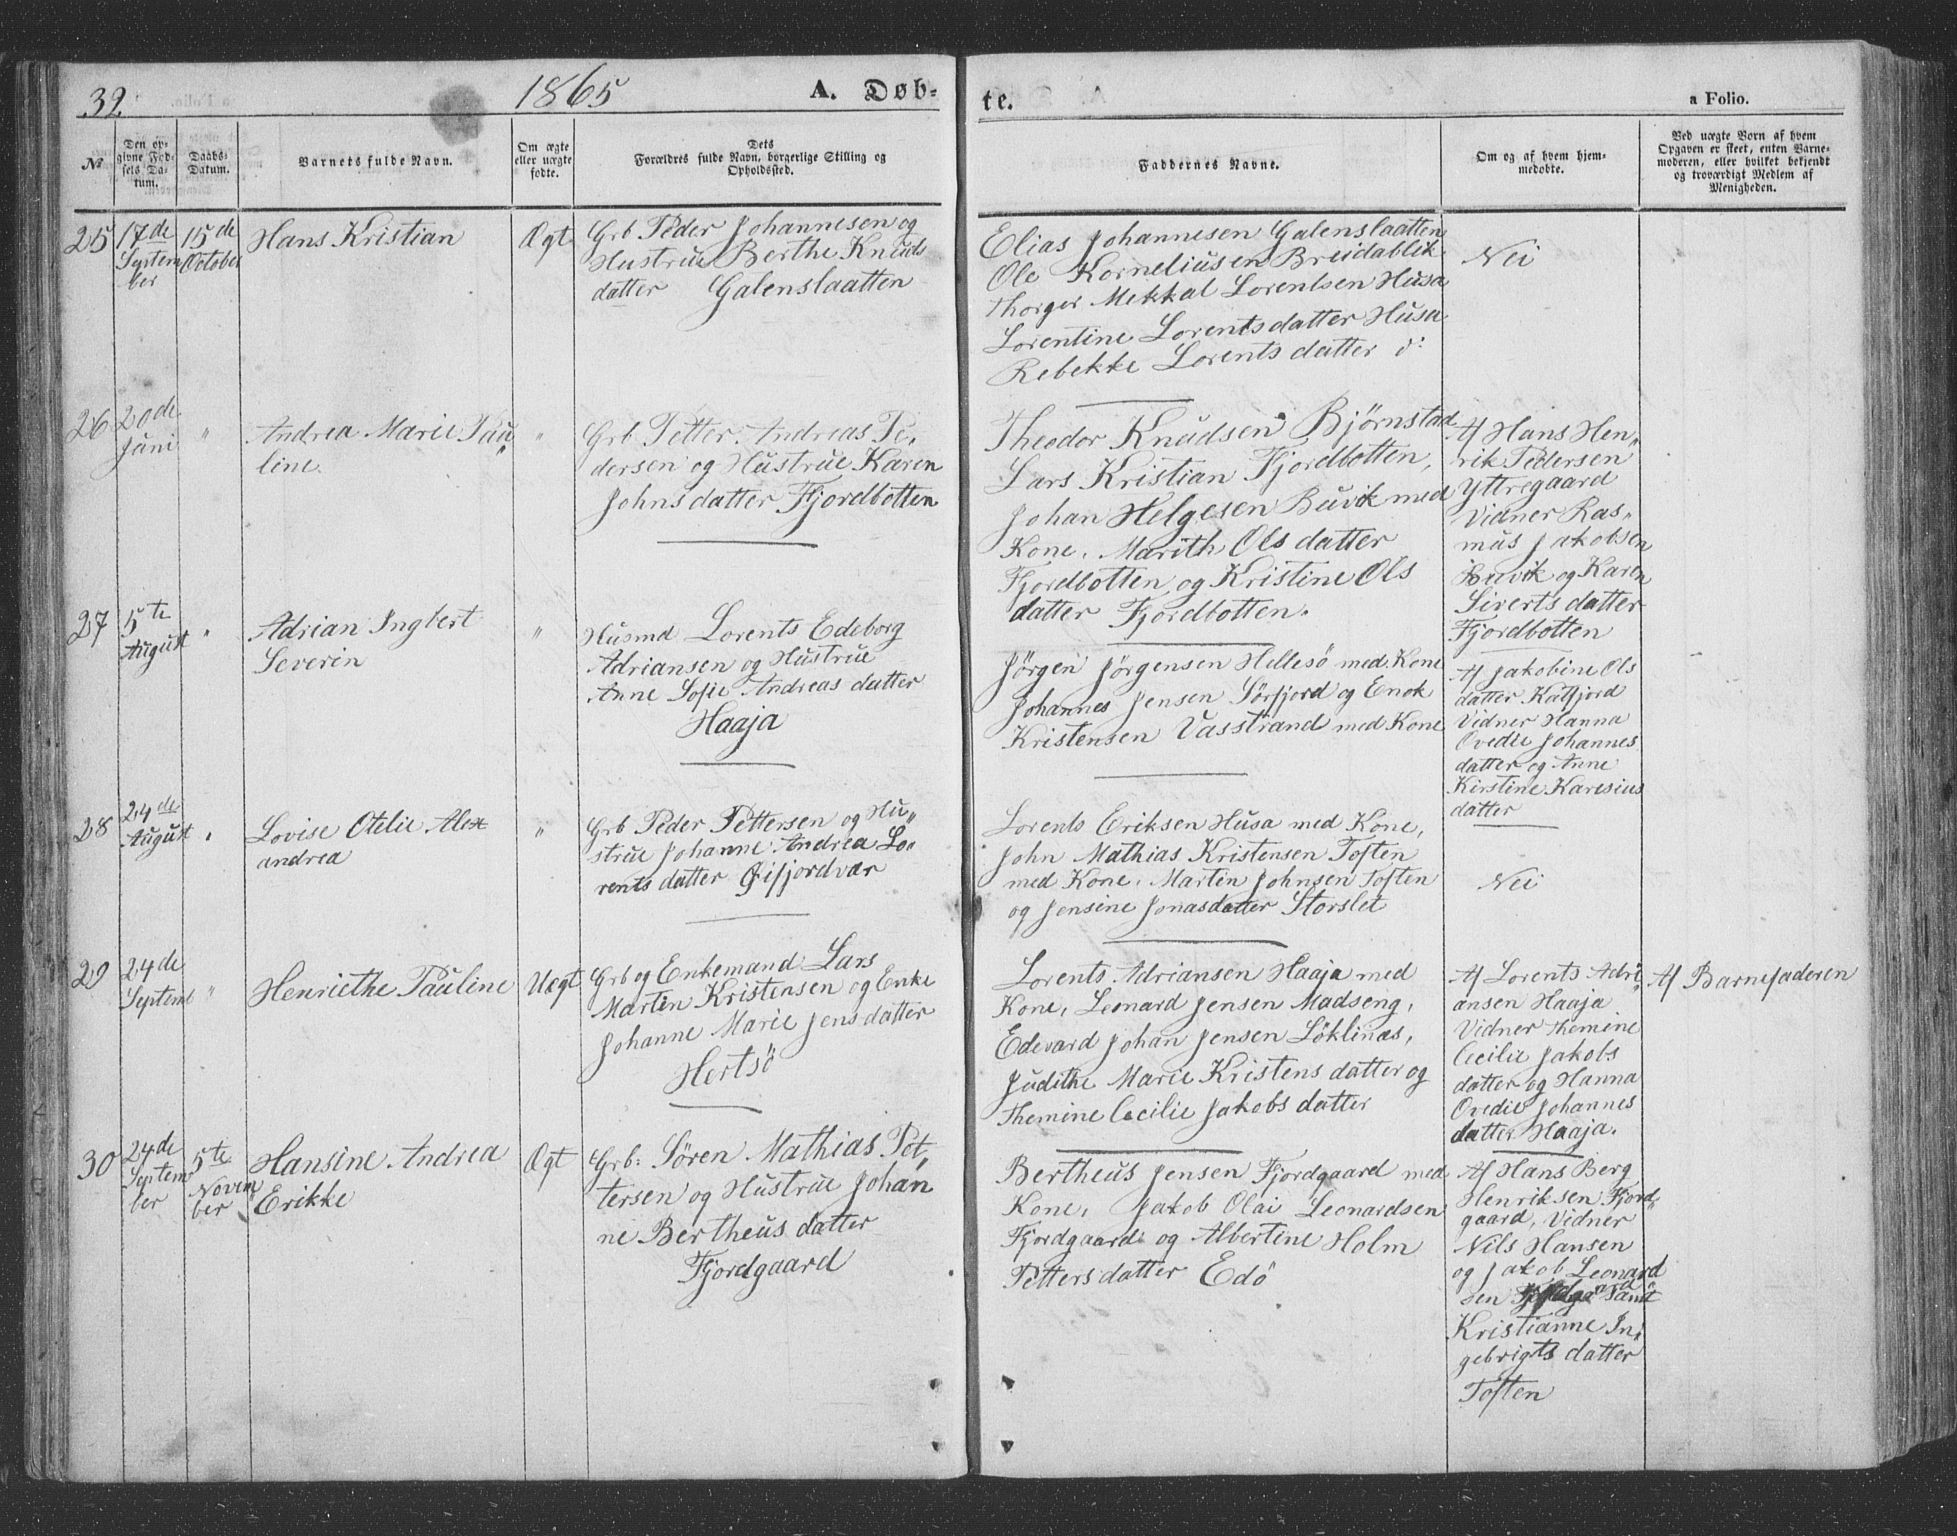 32.
1865
A. Døb-
te.
a Folio.
№
Den op-
givne Fød-
sels Da-
tum.
Daabs-
Datum.
Barnets fulde Navn.
Om ægte
eller uægte
fødte.
Dets
Forældres fulde Navn, borgerlige Stilling og
Opholdssted.
Faddernes Navne.
Om og af hvem hjem-
medøbte.
Ved uægte Born af hvem
Opgaven er skeet, enten Barne-
moderen, eller hvilket bekjendt
og troværdigt Medlem af
Menigheden.
25
17de
Septem
ber
15de
October
Hans Kristian
Ægt
Grb Peder Johannesen og
Hustrue Berthe Knuds
datter Galenslaatten
Elias Johannesen Galenslaatten
Ole Korneliusen Breidablik
Thorger Mekkal Lorentsen Husa
Lorentine Lorentsdatter Husa
Rebekke Lorents datter d:
Nei
26
20de
Juni
"
Andrea Marie Pau„
line.
"
Grb Petter Andreas Pe,
dersen og Hustrue Karen
Johnsdatter Fjordbotten
Theodor Knudsen Bjørnstad
Lars Kristian Fjordbotten,
Johan Helgesen Buvik med
Kone, Marith Ols datter
Fjordbotten og Kristine Ols
datter Fjordbotten.
Af Hans Hen„
rik Pedersen
Yttregaard
Vidner Ras„
mus Jakobsen
Buvik og Karen
Siverts datter
Fjordbotten
27
5te
August
"
Adrian Ingbert
Severin
"
Husmd Lorents Edeborg
Adriansen og Hustrue
Anne Sofie Andreas datter
Haaja
Jörgen Jörgensen Hellesö med Kone
Johannes Jensen Sörfjord og Enok
Kristensen Vasstrand med Kone
Af Jakobine Ols
datter Katfjord
Vidner Hanna
Ovedie Johannes
datter og Anne
Kirstine Karesius
datter
28
24de
August
"
Lovise Otelie Alex
andrea
"
Grb Peder Pettersen og Hu„
strue Johanne Andrea Lo„
rents datter Øifjordvær
Lorents Eriksen Husa med Kone,
John Mathias Kristensen Toften
med Kone, Martin Johnsen Toften
og Jensine Jonasdatter Storslet
Nei
29
24de
Septemb
"
Henriethe Pauline
Uegt
Grb og Enkemand Lars
Martin Kristensen og Enke
Johanne Marie Jens datter
Hertsö
Lorents Adriansen Haaja med
Kone, Leonard Jensen Madseng,
Edevard Johan Jensen Löklinæs,
Judithe Marie Kristens datter og
Themine Cecilie Jakobs datter
Af Lorents Adri„
ansen Haaja
Vidner Themine
Cecilie Jakobs
datter og Hanna
Ovedie Johannes
datter Haaja.
Af Barnefaderen
30
24de
Septem
ber
5te
Novem
ber
Hansine Andrea
Erikke
Ægt
Grb: Sören Mathias Pet„
tersen og Hustrue Johan
ne Bertheus datter
Fjordgaard
Bertheus Jensen Fjordgaard med
Kone, Jakob Olai Leonardsen
Fjordgaard og Albertine Holm
Petters datter Edö
Af Hans Berg
Henriksen Fjord„
gaard, Vidner
Nils Hansen
og Jakob Leonard
sen samt
Kristianne In„
gebrigts datter
Toften